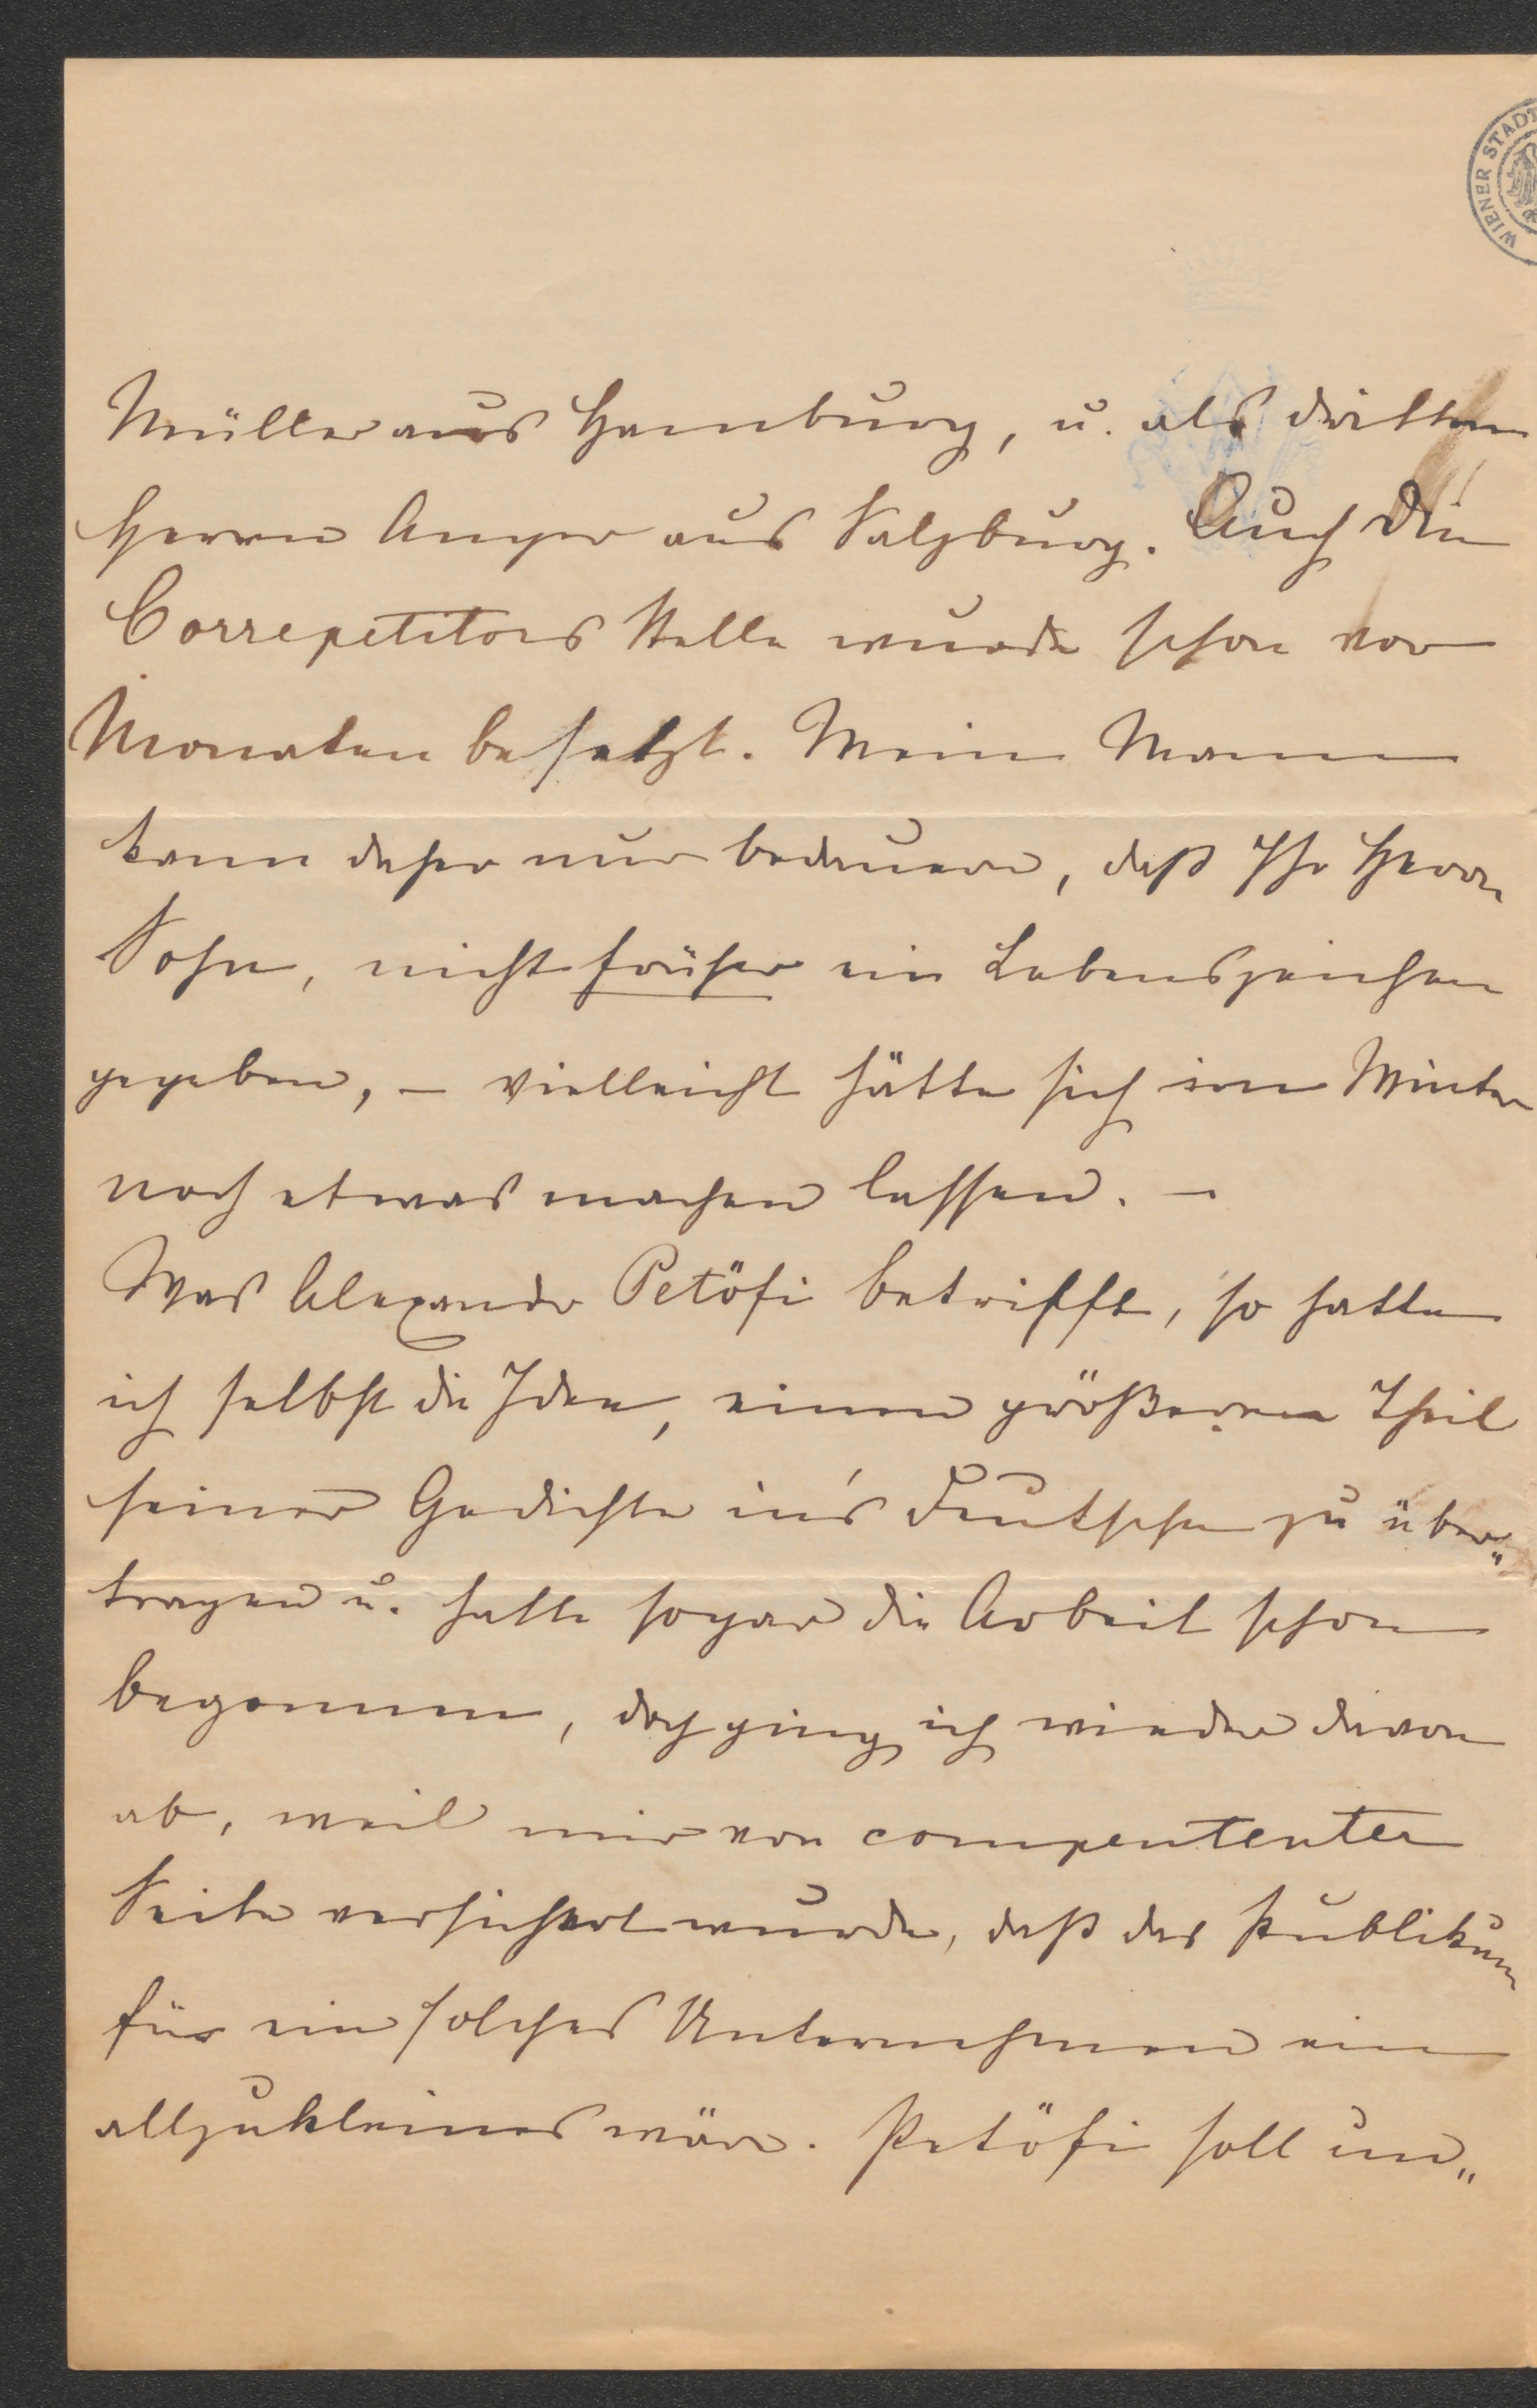 WIENER STADT
Müller aus Hamburg, u. als dritten
Herrn Anger aus Salzburg. Auch die
Correpetitors Stelle wurde schon vor
Monaten besetzt. Mein Mann
kann daher nur bedauern, daß Ihr Herr
Sohn, nicht früher ein Lebenszeichen
gegeben, – vielleicht hätte sich im Winter
noch etwas machen lassen. –
Was Alexander Petöfi betrifft, so hatte
ich selbst die Idee, einen größeren Theil
seiner Gedichte in's Deutsche zu über„
tragen u. hatte sogar die Arbeit schon
begonnen, doch ging ich wieder davon
ab, weil mir von compententer
Seite versichert wurde, daß das Publikum
für ein solches Unternehmen ein
allzukleines wäre. Petöfi soll un„